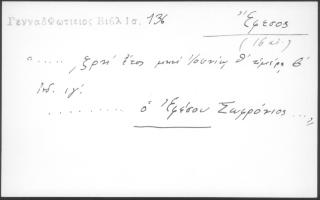 Γενναδ Φωτίτιος Βιβλ Ισ. 136
Ἔφεσος
(16 αἰ.)
" ..... , ζρπί ἔτος μηνὶ Ἰουνίῳ θʹ ἡμέρᾳ βʹ
ἰνδ. ιγʹ.
......... ὁ Ἐφέσου Σωφρόνιος ... "